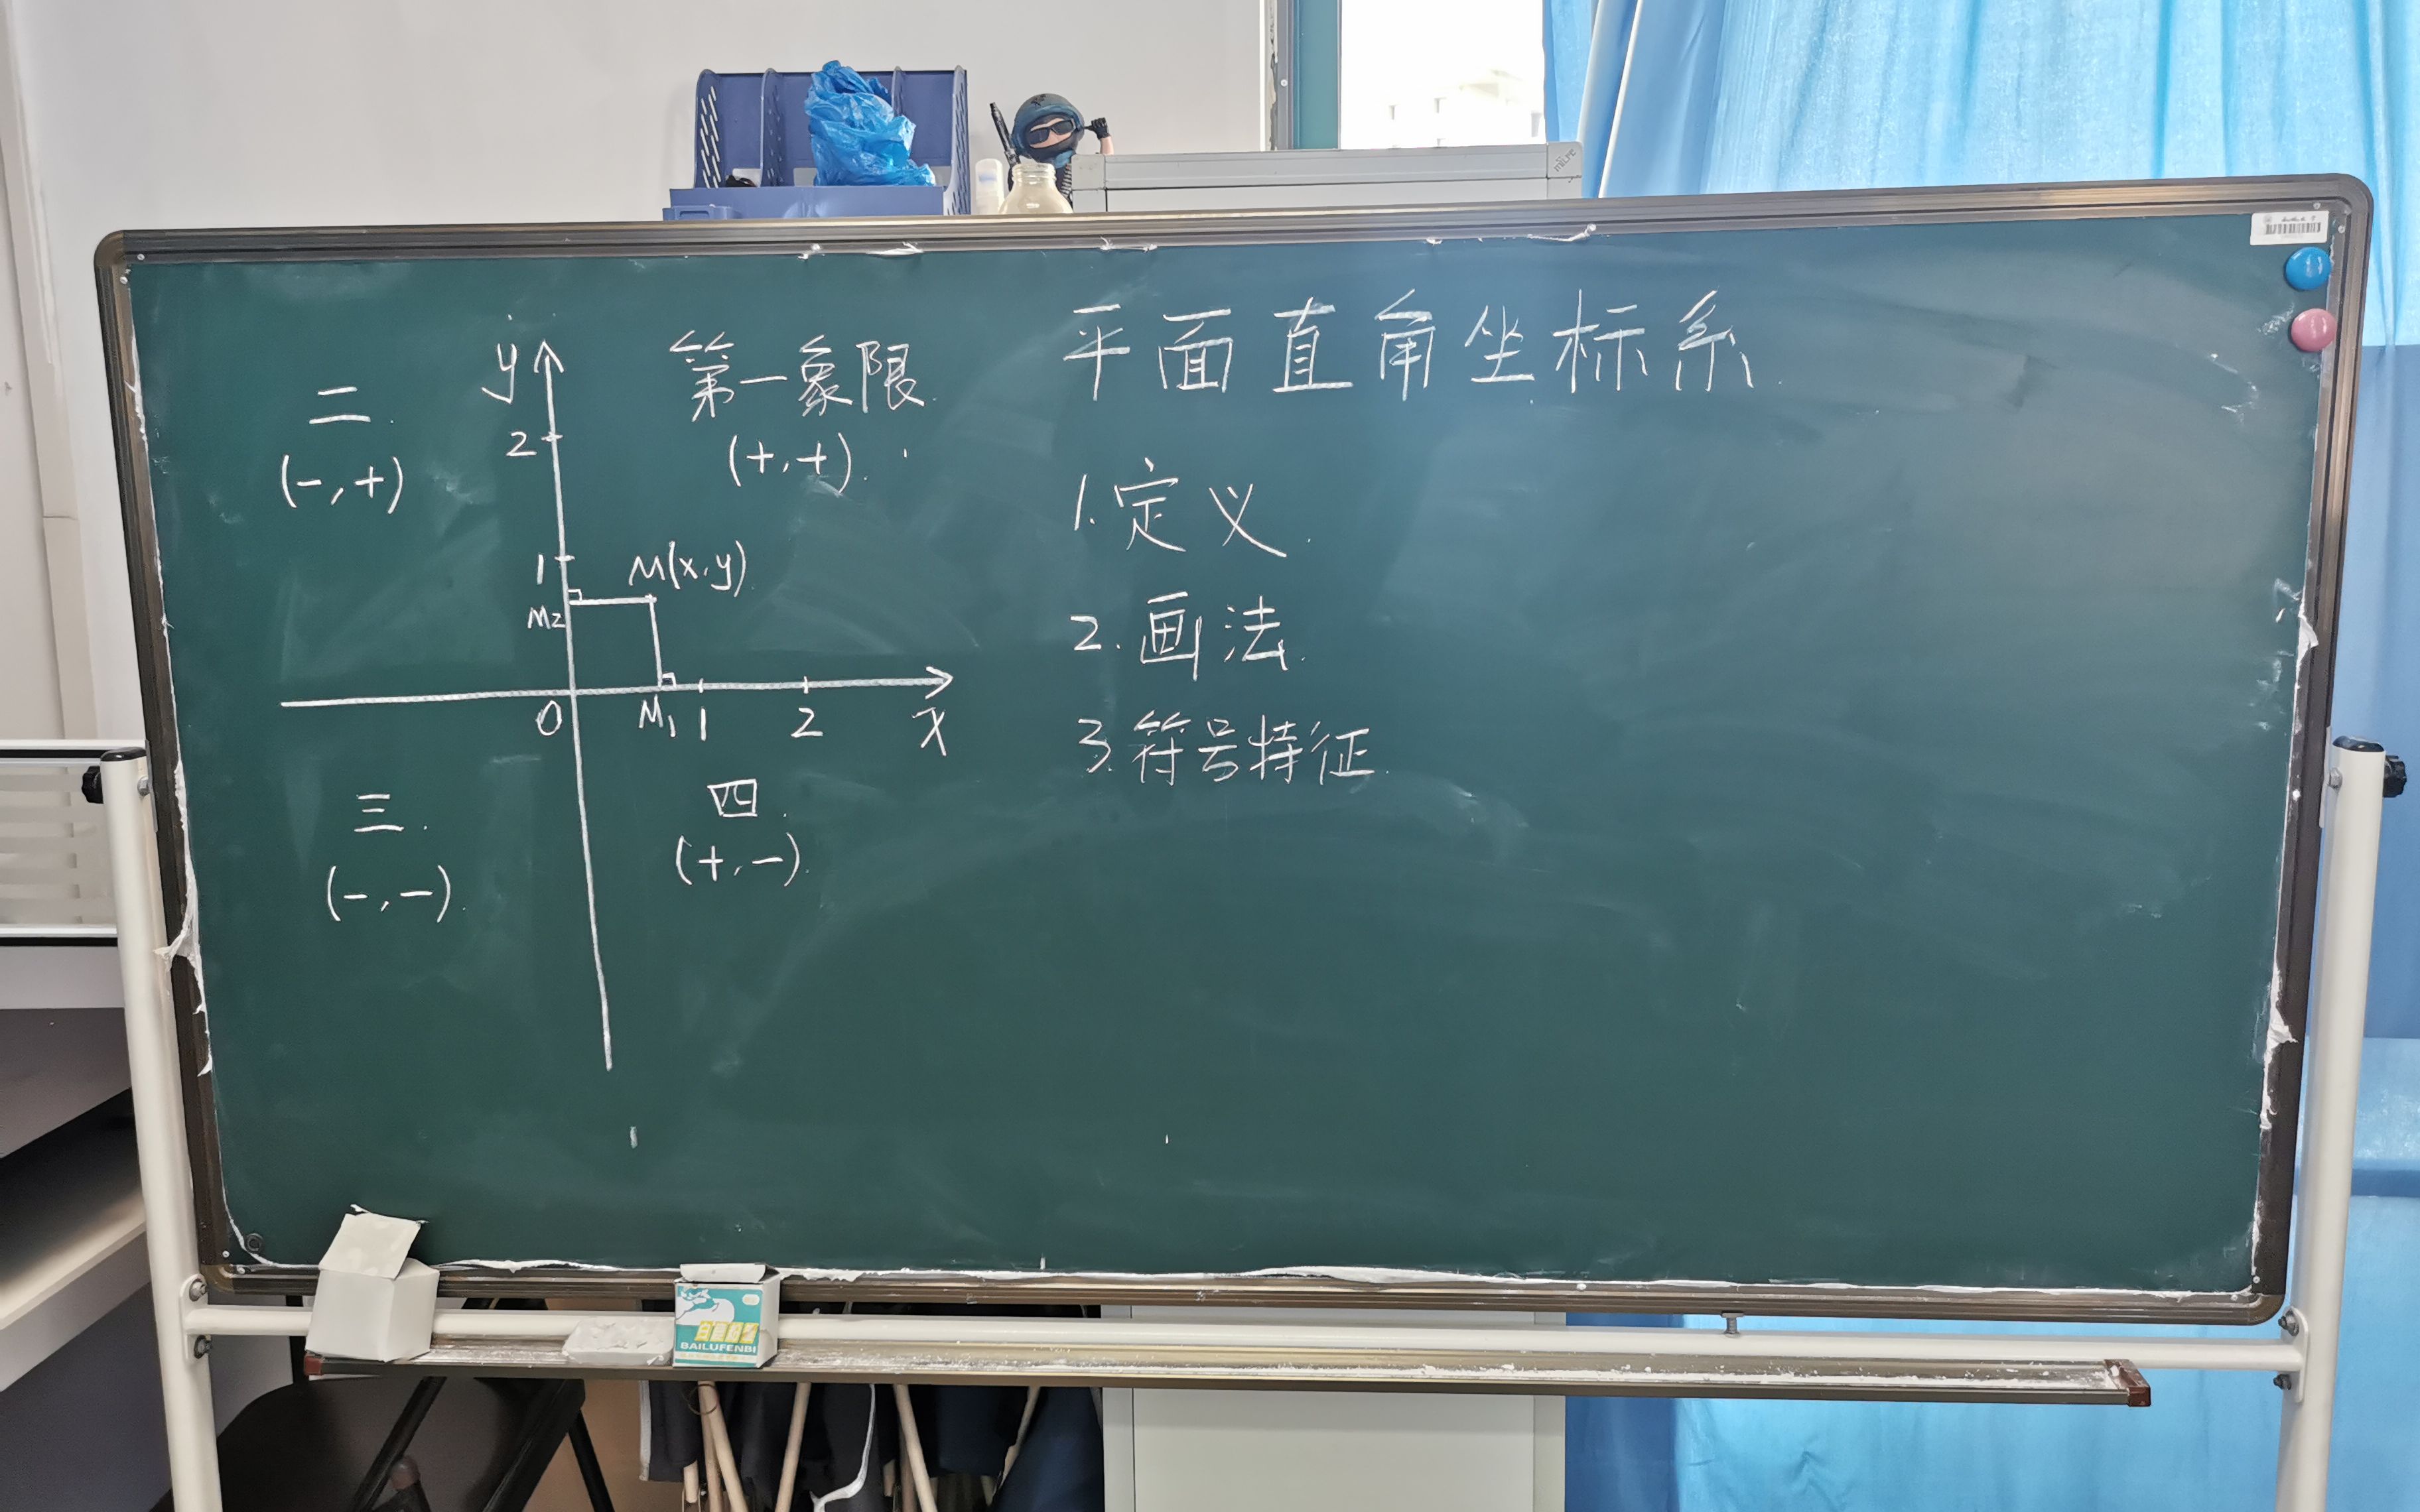 平面直角坐标系
1.定义
2.画法
3.符号特征
y
第一象限
(+,+)
二
(-,+)
2
1
M(x,y)
M2
0
M1
1
2
x
三
(-,-)
四
(+,-)
BAILUFENBI